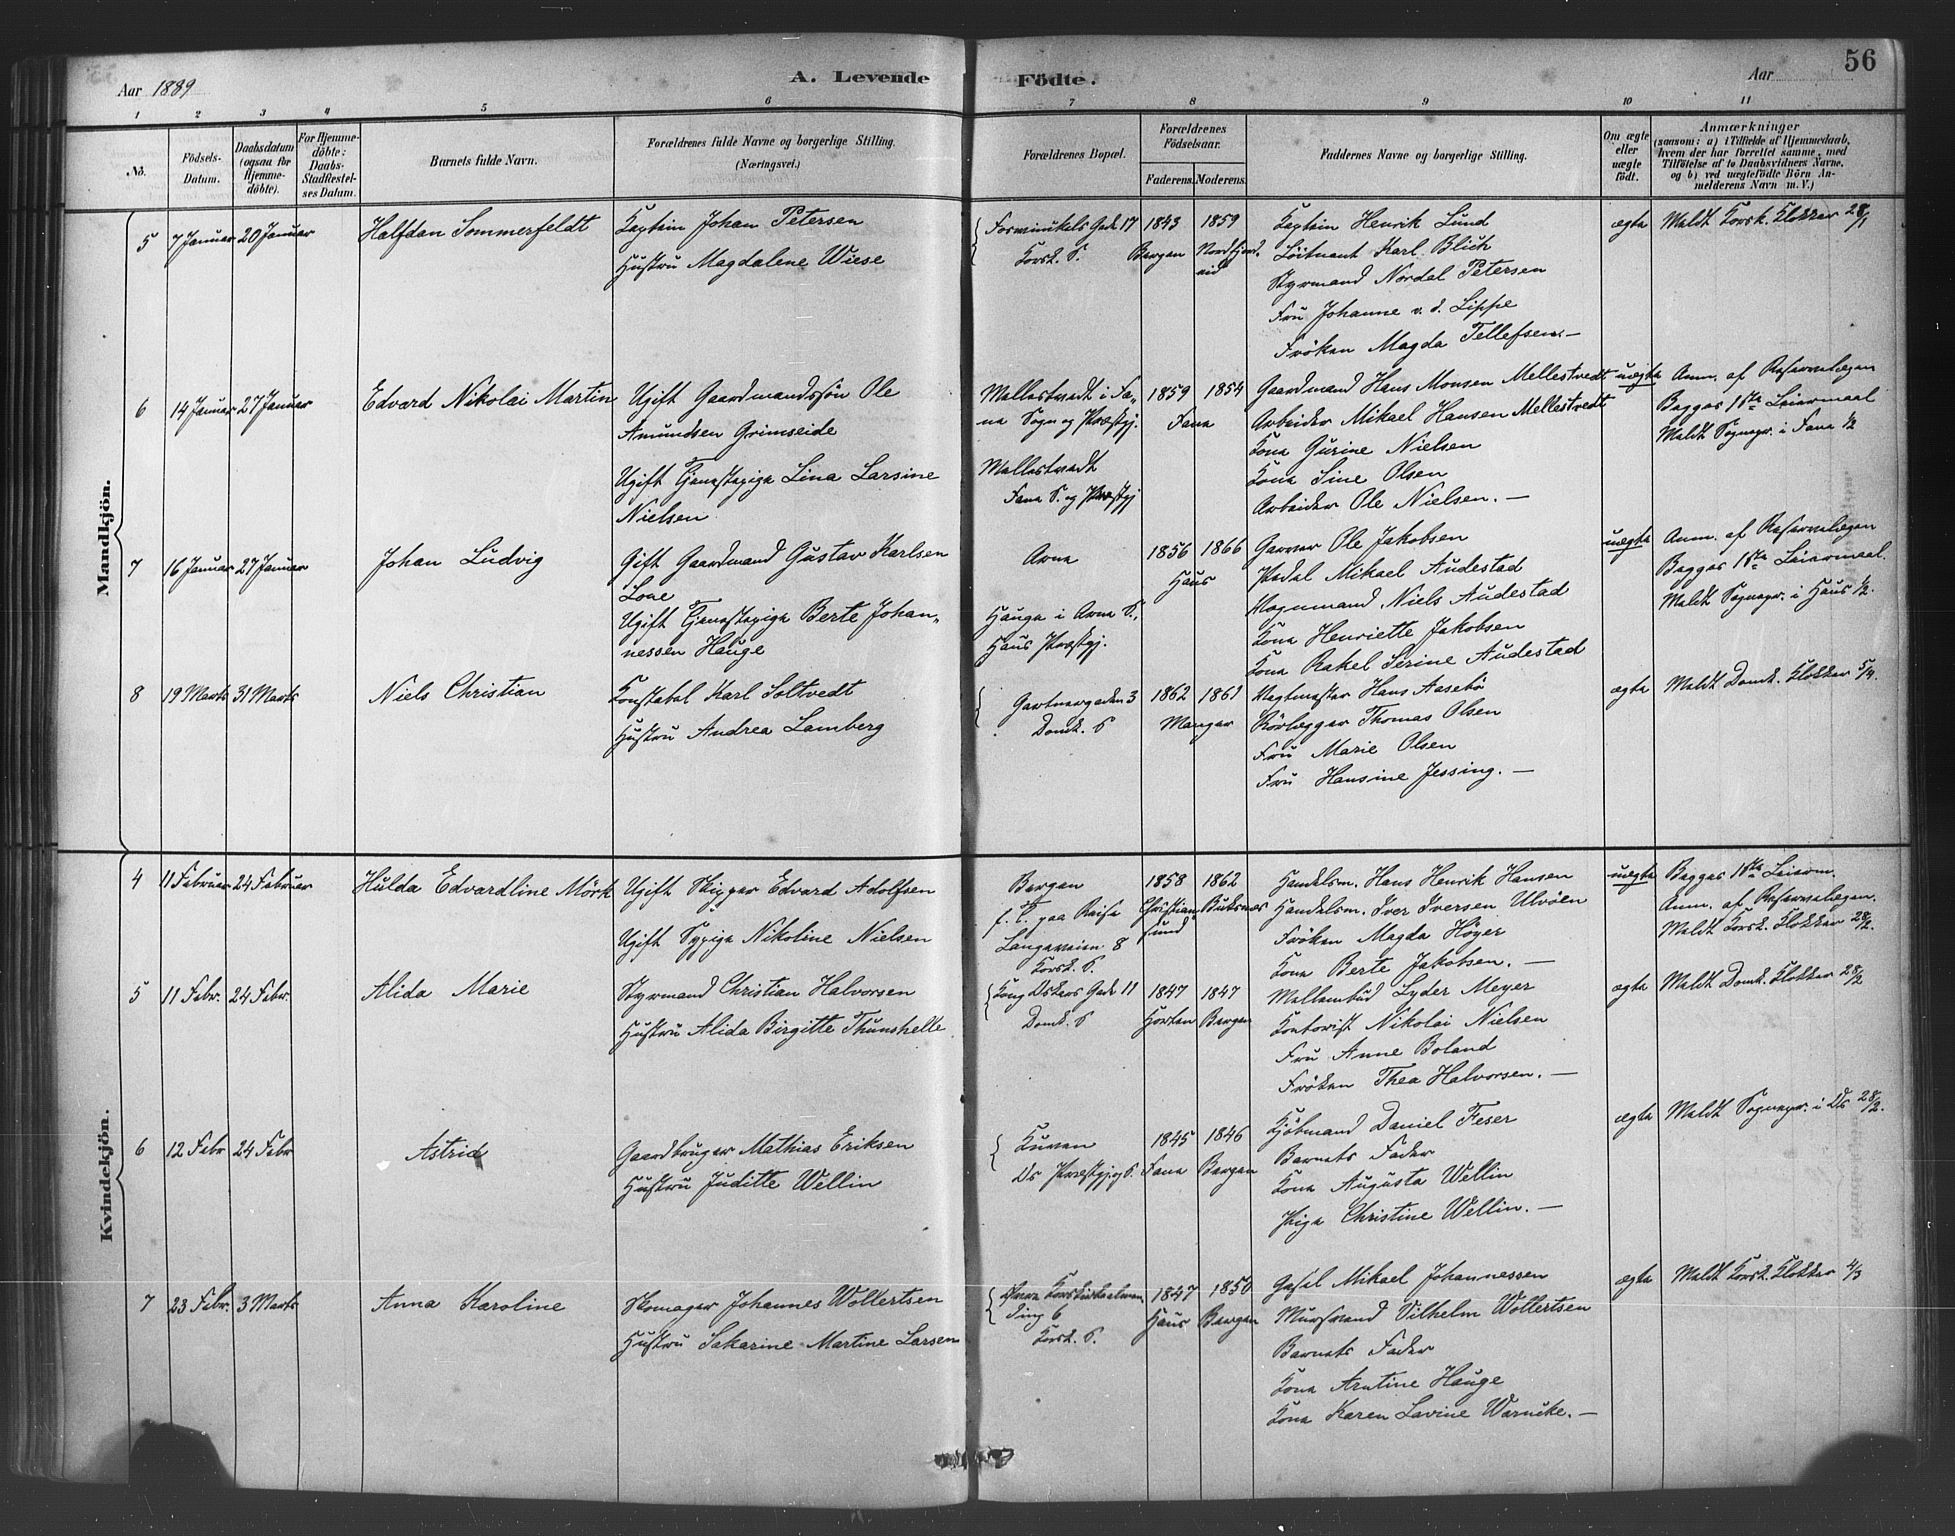 56
Aar 1889
A. Levende Födte.
Aar
1 2 3 4 5 6 7 8 9 10 11
No.
Födsels-Datum.
Daabsdatum (ogsaa for Hjemmedöbte).
For Hjemmedöbte: Daabs-Stadfæstelses Datum.
Barnets fulde Navn.
Forældrenes fulde Navne og borgerlige Stilling. (Næringsvei.)
Forældrenes Bopæl.
Forældrenes Födselsaar.
Faderens. Moderens.
Faddernes Navne og borgerlige Stilling.
Om ægte eller uægte födt.
Anmærkninger
(saasom: a) i Tilfælde af Hjemmedaab, hvem der har forrettet samme, med Tilföielse af to Daabsvidners Navne, og b) ved uægtefödte Börn Anmelderens Navn m. V.)
Mandkjön.
5 7 Januar 20 Januar
Halfdan Sommerfeldt
Kaptein Johan Petersen
Hustru Magdalene Wiese
Gade 17
Korsk. S.
1843 1859
Bergen Nordfjordeid
Kaptein Henrik Lund
Löitnant Karl Blich
Styrmand Nordal Petersen
Fru Johanne v. d. Lippe
Fröken Magda Tellefsen. —
ægte
Meldt Korsk. Klokker 28/1
6 14 Januar 27 Januar
Edvard Nikolai Martin
Ugift Gaardmandssön Ole
Amundsen Grimseide
Ugift Tjenestepige Lina Larsine
Nielsen
Mellestvedt i Fa-
na Sogn og Præstgj.
Mellestvedt
Fana S. og Præstgj
1859 1854
Fana
Gaardmand Hans Monsen Mellestvedt
Arbeider Mikael Hansen Mellestvedt
Kone Gurine Nielsen
Kone Sine Olsen
Arbeider Ole Nielsen. —
uægte
Anm. af Reservelægen
Begges 1ste Leiermaal
Meldt Sognepr. i Fana 1/2
7 16 Januar 27 Januar
Johan Ludvig
Gift Gaardmand Gustav Karlsen
Lone
Ugift Tjenestepige Berte Johan-
nessen Hauge
Arne
Hauge i Arne S.,
Haus Præstgj.
1856 1866
Haus
Garver Ole Jakobsen
Pedel Mikael Audestad
Vognmand Niels Audestad
Kone Henriette Jakobsen
Kone Rakel Serine Audestad
uægte
Anm. af Reservelægen
Begges 1ste Leiermaal.
Meldt Sognepr. i Haus 1/2.
8 19 Marts 31 Marts
Niels Christian
Konstabel Karl Soltvedt
Hustru Andrea Lamberg
Gartnergaden 3
Domk. S
1862 1861
Manger
Vagtmester Hans Aasebö
Rörlægger Thomas Olsen
Fru Marie Olsen
Fru Hansine Jessing. —
ægte
Meldt Domk. Klokker 5/4.
Kvindekjön.
4 11 Februar 24 Februar
Hulda Edvardline Mörk
Ugift Skipper Edvard Adolfsen
Ugift Sypige Nikoline Nielsen
Bergen
f. T. paa Reise
Langeveien 8
Korsk. S.
1858 1862
Christian- Buksnes
sund
Handelsm. Hans Henrik Hansen
Handelsm. Iver Iversen Ulvöen
Fröken Magda Höyer
Kone Berte Jakobsen. —
uægte
Begges 1ste Leierm.
Anm. af Reservelægen.
Meldt Korsk. Klokker 28/2.
5 11 Febr. 24 Febr.
Alida Marie
Styrmand Christian Halvorsen
Hustru Alida Birgitte Thunshelle
Kong Oskars Gade 11
Domk. S
1847 1847
Horten Bergen
Mellembud Lyder Meyer
Kontorist Nikolai Nielsen
Fru Anne Boland
Fröken Thea Halvorsen. —
ægte
Meldt Domk. Klokker 28/2
6 12 Febr 24 Febr
Astrid
Gaardbruger Mathias Eriksen
Hustru Juditte Wellin
Os Præstgj. og S.
1845 1846
Fana Bergen
Kjöbmand Daniel Feser
Barnets Fader
Kone Augusta Wellin
Pige Christine Wellin. —
ægte
Meldt Sognepr. i Os 28/2.
7 23 Febr. 3 Marts
Anna Karoline
Skomager Johannes Wollertsen
Hustru Sakarine Martine Larsen
Övre Korskirkealmen-
ding 6
Korsk. S.
1847 1850
Haus Bergen
Gesel Mikael Johannessen
Murmand Vilhelm Wollertsen
Barnets Fader
Kone Arntine Hauge
Kone Karen Lavine Warncke. —
ægte
Meldt Korsk. Klokker 4/3